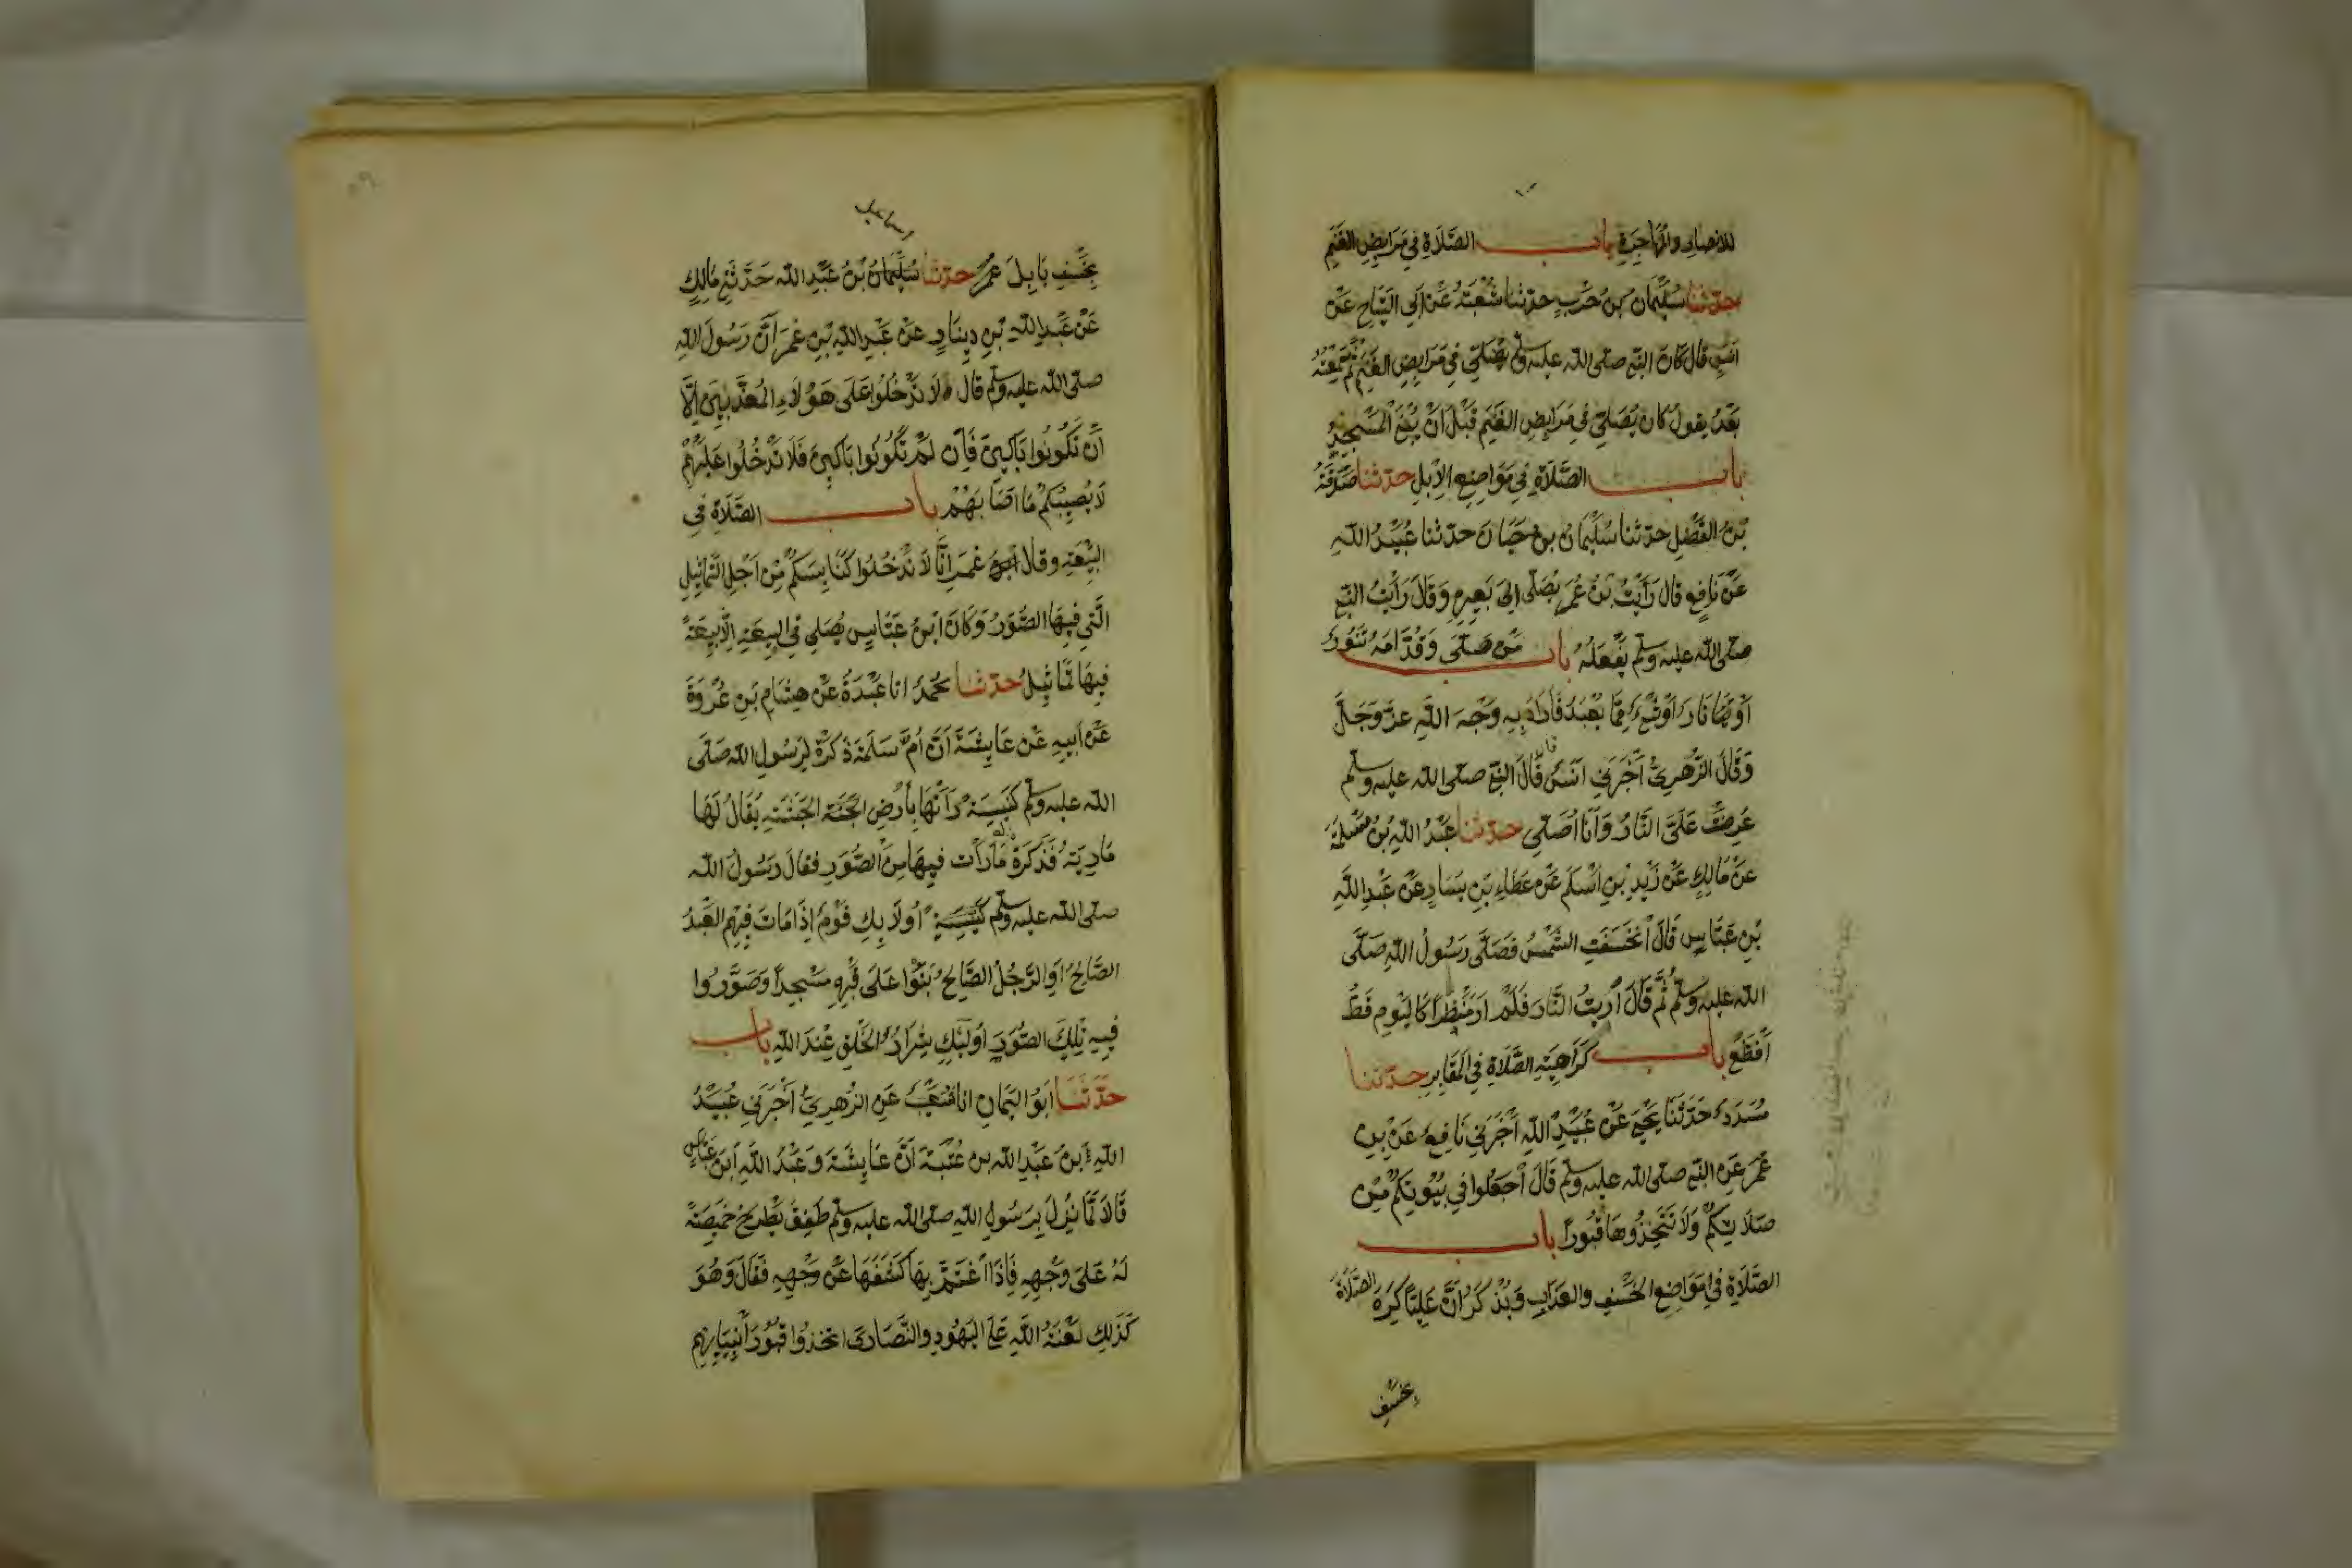 للانصار والمهاجرة باب الصَّلَاةِ في مَرَابِضِ الغَنَمِ
حدثنا سُلَيْمَان بنُ حَرْبٍ حدثنا شُعْبَةُ عَنْ اَبِي التَّيَّاحِ عَنْ
اَنَسٍ قال كانَ النبي صلى الله عليه وسلم يُصَلِّي في مَرَابِضِ الغَنَمِ ثُمَّ سَمِعْتُهُ
بَعْدُ يقولُ كان يُصَلِّي في مَرَابِضِ الغَنَمِ قَبْلَ اَنْ يُبْنَى المَسْجِدُ
باب الصَّلَاةِ في مَوَاضِعِ الاِبِلِ حدثنا صَدَقَةُ
بْنُ الفَضْلِ حدثنا سُلَيْمَانُ بنُ حَيَّانَ حدثنا عُبَيْدُ اللهِ
عَنْ نَافِعٍ قال رَاَيْتُ بْنَ عُمَرَ يُصَلِّى اِلى بَعِيرِهِ وَقَالَ رَاَيْتُ النبي
صلى الله عليه وسلم يَفْعَلُهُ باب مَنْ صَلَّى وَقُدَّامَهُ تَنُّورٌ
اَوْ نَارٌ اَوْ شَيْءٌ مِمَّا يُعْبَدُ فَاَرَادَ بِهِ وَجْهَ اللهِ عَزَّ وَجَلَّ
وَقَالَ الزُّهْرِيُّ اَخْبَرَنِي اَنَسٌ قَالَ قَالَ النبي صلى الله عليه وسلم
عُرِضَتْ عَلَيَّ النَّارُ وَاَنَا اُصَلِّي حدثنا عَبْدُ اللهِ بْنُ مَسْلَمَةَ
عَنْ مَالِكٍ عَنْ زَيْدِ بْنِ اَسْلَمَ عَنْ عَطَاءِ بْنِ يَسَارٍ عَنْ عَبْدِ اللهِ
بْنِ عَبَّاسٍ قَالَ اَنْخَسَفَتِ الشَّمْسُ فَصَلَّى رَسُولُ اللهِ صَلَّى
الله عليه وسلم ثُمَّ قَالَ اُرِيتُ النَّارَ فَلَمْ اَرَ مَنْظَرًا كَالْيَوْمِ قَطُّ
اَفْظَعَ باب كَرَاهِيَةِ الصَّلَاةِ في المَقَابِرِ حدثنا
مُسَدَّدٌ حَدَّثَنَا يَحْيَى عَنْ عُبَيْدِ اللهِ اَخْبَرَنِي نَافِعٌ عَنْ بْنِ
عُمَرَ عَنِ النبي صلى الله عليه وسلم قَالَ اَجعَلُوا في بُيُوتِكُمْ مِنْ
صَلَاتِكُمْ وَلَا تَتَّخِذُوهَا قُبُورًا باب
الصَّلَاةِ في مَوَاضِعِ الخَسْفِ والعَذَابِ وَيُذْكَرُ اَنَّ عَلِيًّا كَرِهَ الصَّلَاةَ
بخَسْفِ
اسماعيل
بِخَسْفِ بَابِلَ حدثنا سُلَيْمَانُ بْنُ عَبْدِ الله حَدَّثَنِي مَالِكٌ
عَنْ عَبْدِ اللهِ بْنِ دِينَارٍ عَنْ عَبْدِ اللهِ بْنِ عُمَرَ اَنَّ رَسُولَ اللهِ
صلى الله عليه وسلم قال لا تَدْخُلُوا عَلَى هَؤُلَاءِ المُعَذَّبِينَ اِلَّا
اَنْ تَكُونُوا بَاكِينَ فَاِنْ لَمْ تَكُونُوا بَاكِينَ فَلَا تَدْخُلُوا عَلَيْهِمْ
لَا يُصِيبُكُمْ مَا اَصَابَهُمْ باب الصَّلَاةِ في
البِيْعَةِ وقال عُمَرَ اِنَّا لَا نَدْخُلُوا كَنَايِسَكُمْ مِنْ اَجْلِ التَّمَاثِيلِ
الَّتِي فِيهَا الصُّوَرُ وَكَانَ ابْنُ عَبَّاسٍ يُصَلِي في البِيعَةِ اِلَّا بِيعَةً
فِيهَا تَمَاثِيلُ حدثنا مُحَمدٌ انا عَبْدَةُ عَنْ هِشَامِ بْنِ عُرْوَةَ
عَنْ اَبِيهِ عَنْ عَايِشَةَ اَنَّ اُمَّ سَلَمَةَ ذَكَرَتْ لِرَسُولِ الله صَلَّى
الله عليه وسلم كَنِيسَةً رَاَتْهَا بِاَرْضِ الحَبَشَةِ يُقَالُ لَهَا
مَارِيَةُ فَذَكَرَتْ لَهُ مَا رَاَتْ فِيهَا مِنَ الصُّوَرِ فقال رَسُولُ الله
صلى الله عليه وسلم اُولَايِكِ قَوْمٌ اِذَا مَاتَ فِيهِمُ العَبْدُ
الصَّالِحُ اَوِ الرَّجُلُ الصَّالِحُ بَنَوْا عَلَى قَبْرِهِ مَسْجِدًا وَصَوَّرُوا
فِيهِ تِلْكَ الصُّوَرَ اُولَئِكِ شِرَارُ الخَلْقِ عِنْدَ اللهِ باب
حَدَّثَنَا اَبُو اليَمَانِ انا شُعَيْبٌ عَنِ الزُّهرِيِّ اَخْبَرَنِي عُبَيْدُ
اللهِ ابنُ عَبْدِ الله بن عُتْبَةَ اَنَّ عَايِشَةَ وَعَبْدُ اللهِ ابْنَ عَبَّاسٍ
قَالَا لَمَّا نزلَ بِرَسُولِ اللهِ صلى الله عليه وسلم طَفِقَ يَطْرَحُ خَمِيصَةً
لَهُ عَلَى وَجْهِهِ فَاِذَا اغْتَمَّ بِهَا كَشَفَهَا عَنْ وَجْهِهِ فَقَالَ وَهُوَ
كَذَلِكَ لَعْنَةُ اللهِ عَلَى اليَهُودِ والنَّصَارَى اتخذُوا قُبُورَ اَنْبِيَايِهِمْ